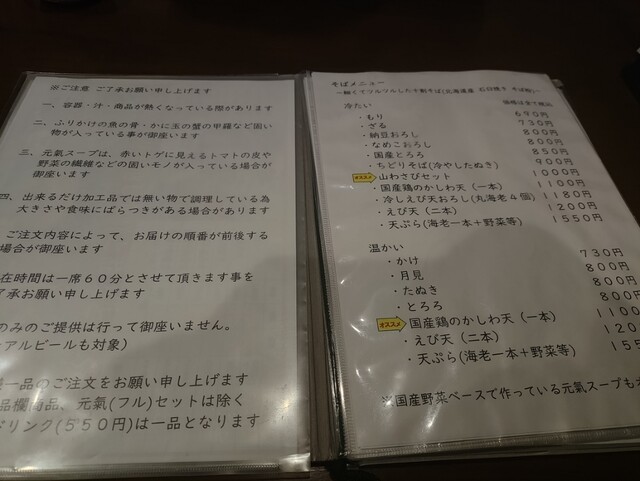 ※ご注意 ご了承お願い申し上げます
一、容器・汁・商品が熱くなっている際があります
二、ふりかけの魚の骨・かに玉の蟹の甲羅など固い
物が入っている事が御座います
三、元氣スープは、赤いトゲに見えるトマトの皮や
野菜の繊維などの固いモノが入っている場合が
御座います
四、出来るだけ加工品では無い物で調理している為
大きさや食味にばらつきがある場合があります
ご注文内容によって、お届けの順番が前後する
場合が御座います
在時間は一席60分とさせて頂きます事を
了承お願い申し上げます
のみのご提供は行って御座いません。
アルビールも対象)
一品のご注文をお願い申し上げます
品欄商品、元氣(フル)セットは除く
ドリンク(550円)は一品となります
そばメニュー
～細くてツルツルした十割そば(北海道産 石臼挽き そば粉)～
冷たい 価格は全て税込
・もり 690円
・ざる 730円
・納豆おろし 800円
・なめこおろし 800円
・国産とろろ 850円
・ちびりそば(冷やしたぬき) 900円
オススメ 山わさびセット 1000円
・国産鶏のかしわ天(一本) 1100円
・冷しえび天おろし(丸海老4個) 1180円
・えび天(二本) 1200円
・天ぷら(海老一本+野菜等) 1550円
温かい
・かけ 730円
・月見 800円
・たぬき 800円
・とろろ 800円
オススメ 国産鶏のかしわ天(一本) 1100
・えび天(二本) 120
・天ぷら(海老一本+野菜等) 155
※国産野菜ベースで作っている元氣スープも